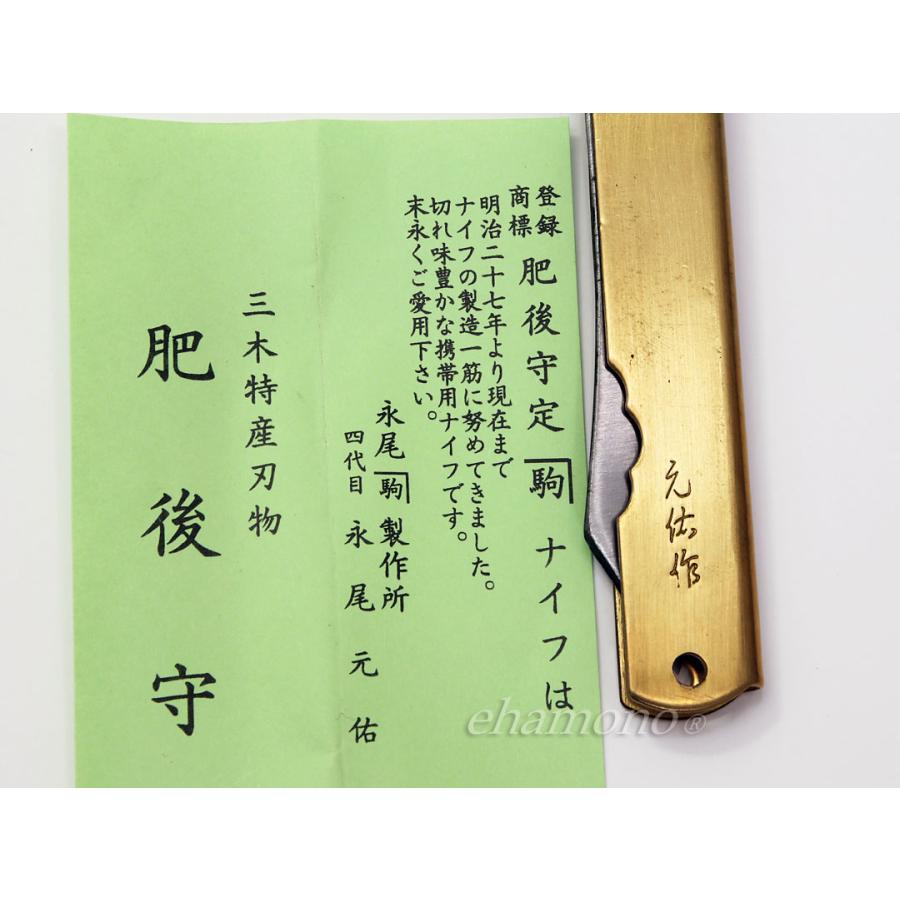 登録
商標
肥後守定駒ナイフは
明治二十七年より現在まで
ナイフの製造一筋に努めてきました。
切れ味豊かな携帯用ナイフです。
末永くご愛用下さい。
永尾駒製作所
四代目 永尾元佑
三木特産刃物
肥後守
元佑作
ehamono®